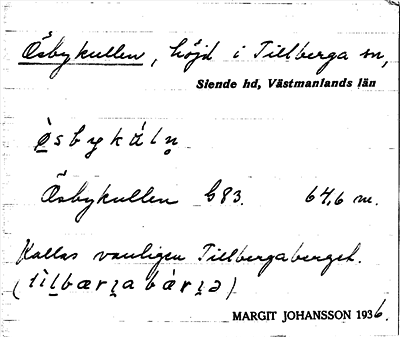 Ösbykullen, höjd i Tillberga sn,
Siende hd, Västmanlands län
Ösbykullen G83. 64,6 m.
Kallas vanligen Tillbergaberget.
MARGIT JOHANSSON 1936.